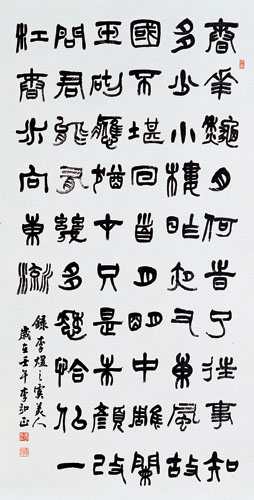 春華秋月何旹了往事知
多少小樓昨夜又東風故
國不堪回首月明中雕闌
玉砌應猶在只是朱顏改
問君能有幾多愁恰似一
江春水向東流
錄李煜之虞美人
歲在壬午李